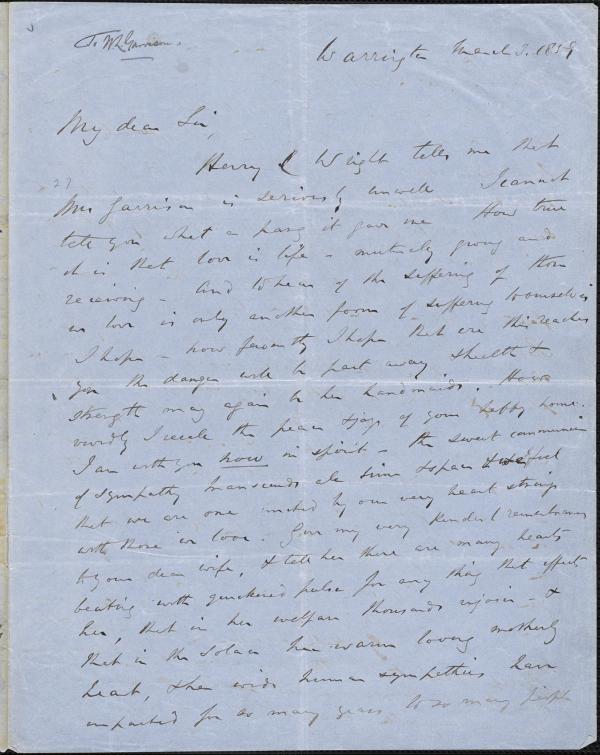 To W L Garrison.
Warrington March 3. 1859
My dear Sir,
Henry C Wright tells me that
27
Mrs Garrison is seriously unwell I cannot
tell you what a pang it gave me How true
it is that love is life - mutually giving and
receiving - and to hear of the suffering of those
we love is only another form of suffering to ourselves
I hope - how fervently I hope that ere this reaches
you the danger will be past away & health &
strength may again be her handmaids. How
vividly I recall the peace & joys of your happy home.
I am with you now in spirit - the sweet communion
of sympathy transcends all time & space & we feel
that we are one united by our very heart strings
with those we love. Give my very kindest remembrances
to your dear wife, & tell her there are many hearts
beating with quickened pulse for any thing that affects
her, that in her welfare thousands rejoice - &
that in the solace her warm loving motherly
heart, & her wide human sympathies have
imparted for so many years to so many